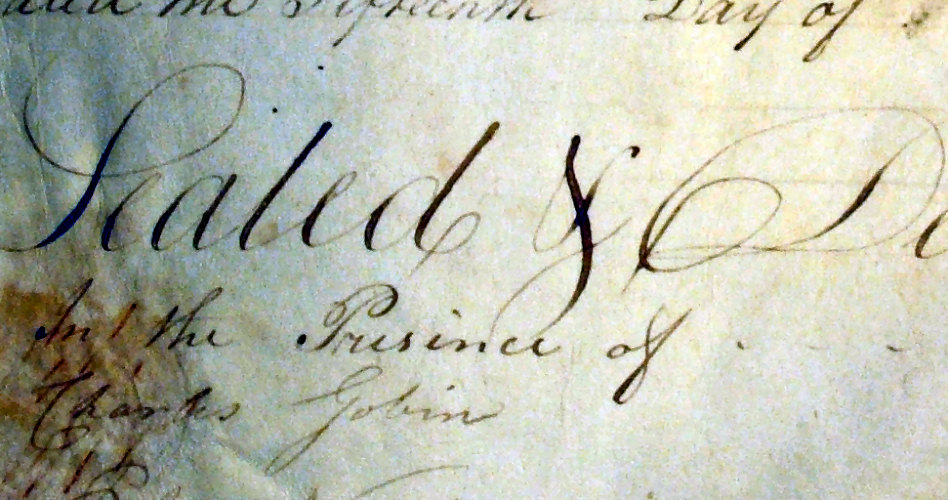 the Fifteenth Day of
Sealed &
In the Presence of - - -
Charles Gobin